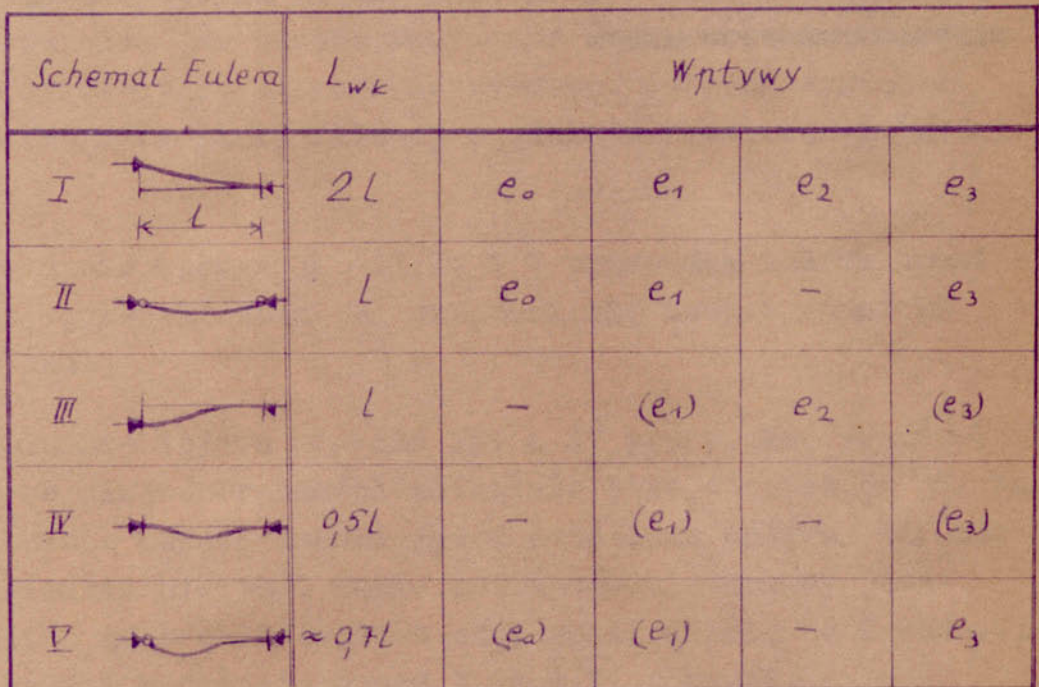 Schemat Eulera L_wk Wpływy
I L 2L e₀ e₁ e₂ e₃
II L e₀ e₁ – e₃
III L – (e₁) e₂ (e₃)
IV 0,5L – (e₁) – (e₃)
V ≈0,7L (e₀) (e₁) – e₃